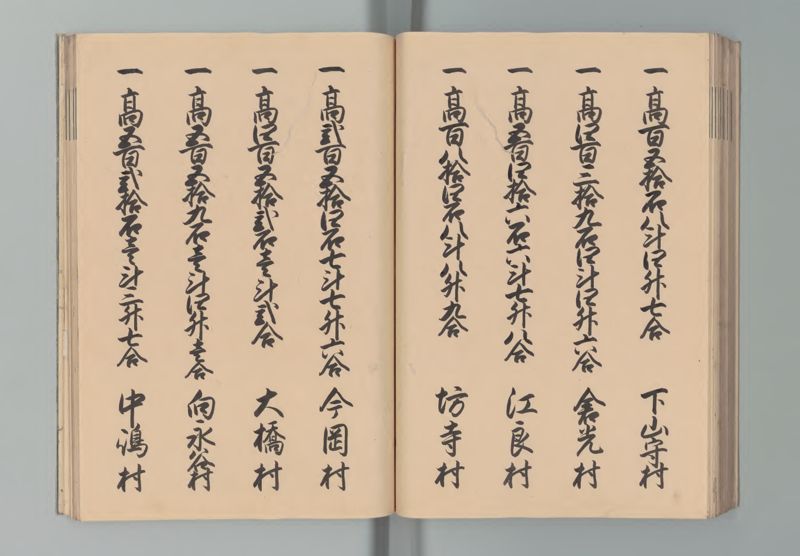 一 高百五拾石八斗四升七合 下山守村
一 高四百三拾九石四斗四升六合 倉光村
一 高五百四拾六石六斗七升八合 江良村
一 高百八拾四石八斗八升九合 坊寺村
一 高弐百五拾四石七斗七升六合 今岡村
一 高四百五拾弐石壱斗弐合 大橋村
一 高五百五拾九石壱斗四升壱合 向永谷村
一 高五百弐拾石壱斗三升七合 中嶋村